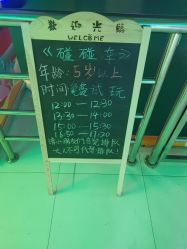 歡迎光臨
WELCOME
《碰碰车》
年龄:5岁以上
时间 免费试玩
12:00 — 12:30
13:30 — 14:00
15:00 — 15:30
16:50 — 17:20
请小朋友们自觉排队
大人不可代替排队!